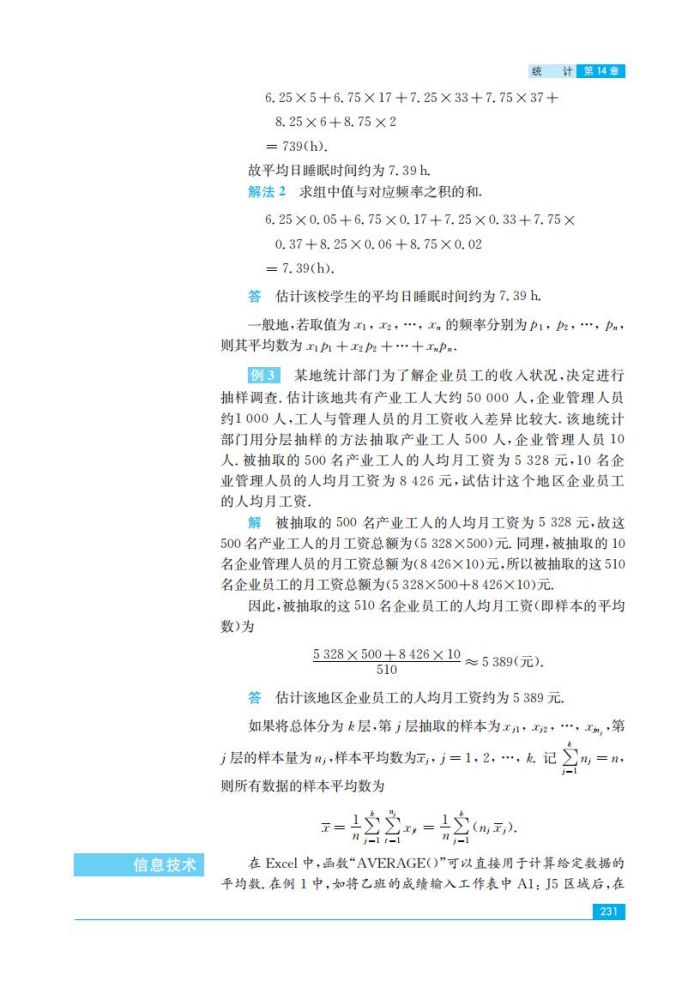 统 计 第 14 章
6. 25×5+6. 75×17+7. 25×33+7. 75×37+
8. 25×6+8. 75×2
= 739(h).
故平均日睡眠时间约为 7. 39 h.
解法 2 求组中值与对应频率之积的和.
6. 25×0. 05+6. 75×0. 17+7. 25×0. 33+7. 75×
0. 37+8. 25×0. 06+8. 75×0. 02
= 7. 39(h).
答 估计该校学生的平均日睡眠时间约为 7. 39 h.
一般地,若取值为 x₁, x₂, …, xₙ 的频率分别为 p₁, p₂, …, pₙ,
则其平均数为 x₁p₁+x₂p₂+…+xₙpₙ.
例 3 某地统计部门为了解企业员工的收入状况,决定进行
抽样调查. 估计该地共有产业工人大约 50 000 人,企业管理人员
约1 000 人,工人与管理人员的月工资收入差异比较大. 该地统计
部门用分层抽样的方法抽取产业工人 500 人,企业管理人员 10
人. 被抽取的 500 名产业工人的人均月工资为 5 328 元,10 名企
业管理人员的人均月工资为 8 426 元,试估计这个地区企业员工
的人均月工资.
解 被抽取的 500 名产业工人的人均月工资为 5 328 元,故这
500 名产业工人的月工资总额为(5 328×500)元. 同理,被抽取的 10
名企业管理人员的月工资总额为(8 426×10)元,所以被抽取的这 510
名企业员工的月工资总额为(5 328×500+8 426×10)元.
因此,被抽取的这 510 名企业员工的人均月工资(即样本的平均
数)为
(5 328×500+8 426×10)/510 ≈ 5 389(元).
答 估计该地区企业员工的人均月工资约为 5 389 元.
如果将总体分为 k 层,第 j 层抽取的样本为 x_{j1}, x_{j2}, …, x_{jn_j},第
j 层的样本量为 n_j,样本平均数为 x̄_j, j=1, 2, …, k. 记 ∑_{j=1}^{k} n_j = n,
则所有数据的样本平均数为
x̄ = (1/n)∑_{j=1}^{k}∑_{t=1}^{n_j} x_{jt} = (1/n)∑_{j=1}^{k}(n_j x̄_j).
信息技术
在 Excel 中,函数“AVERAGE()”可以直接用于计算给定数据的
平均数. 在例 1 中,如将乙班的成绩输入工作表中 A1: J5 区域后,在
231